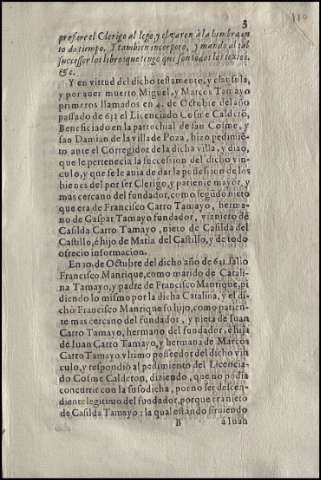 3
prefiere el Clerigo al lego, y el varon à la hembra en
to do tiempo. Y tambien incorporo, y mando al tal
successor los libros que tengo que son todos los textos,
&c.
Y en virtud del dicho testamento, y clausula,
y por auer muerto Miguel, y Marcos Tamayo
primeros llamados en 4. de Octubre del año
passado de 631 el Licenciado Cosme Calderõ,
Beneficiado en la parrochial de san Cosme, y
san Damian de la villa de Poza, hizo pedimiẽ
to ante el Corregidor de la dicha villa, y dixo,
que le pertenecia la succession del dicho vin
culo, y que se le auia de dar la possession de los
bienes del por ser Clerigo, y pariente mayor, y
mas cercano del fundador, como segũdo nieto
que era de Francisco Carro Tamayo, herma-
no de Gaspar Tamayo fundador, viznieto de
Casilda Carro Tamayo, nieto de Casilda del
Castillo, è hijo de Matia del Castillo, y de todo
ofrecio informacion.
En 10. de Octubre del dicho año de 631. salio
Francisco Manrique, como marido de Catali
na Tamayo, y padre de Francisco Manrique, pi
diendo lo mismo por la dicha Catalina, y el di
cho Francisco Manrique su hijo, como parien
te mas cercano del fundador, y nieta de Iuan
Carro Tamayo, hermano del fundador, è hija
de Iuan Carro Tamayo, y hermana de Marcos
Carro Tamayo vltimo posseedor del dicho vin
culo, y respondió al pedimiento del Licencia-
do Cosme Calderon, diziendo, que no podia
concurrir con la susodicha, por no ser descen-
diente legitimo del fundador, porque era nieto
de Casilda Tamayo: la qual estando siruiendo
B
à Iuan